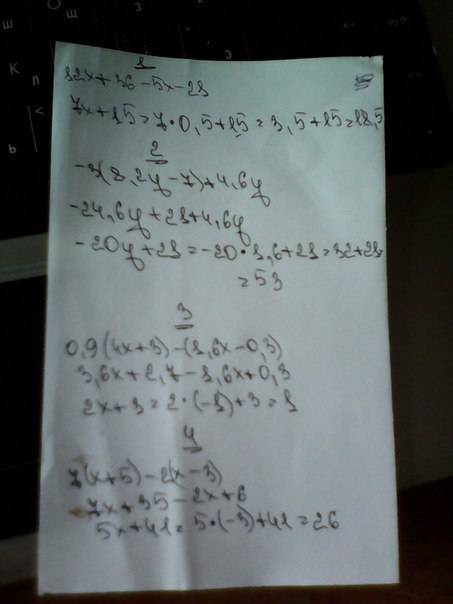 1
12x+36-5x-21
7x+15=7•0,5+15=3,5+15=18,5
2
-3(8,2y-7)+4,6y
-24,6y+21+4,6y
-20y+21=-20•1,6+21=32+21
=53
3
0,9(4x+3)-(1,6x-0,3)
3,6x+2,7-1,6x+0,3
2x+3=2•(-1)+3=1
4
7(x+5)-2(x-3)
7x+35-2x+6
5x+41=5•(-3)+41=26